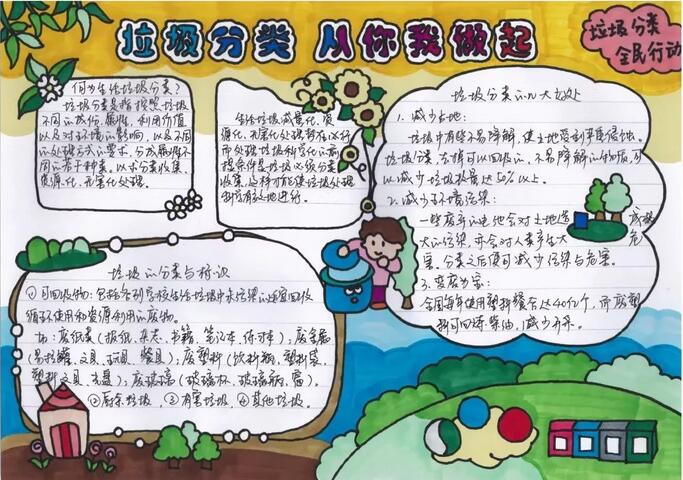 垃圾分类 从你我做起
垃圾分类
全民行动
何为生活垃圾分类？
垃圾分类是指按照垃圾
不同的成份、属性、利用价值
以及对环境的影响，以及不同
的处理方式的要求，分成属性不
同的若干种类。以求分类收集
资源化，无害化处理。
生活垃圾减量化、资
源化、无害化处理
而处理垃圾科学化的前
提条件是垃圾必须分类
收集，这样才能使垃圾处理
垃圾分类的几大好处
1. 减少占地：
垃圾中有些不易降解，使土地受到严重侵蚀。
垃圾分类，去掉可以回收的、不易降解的物质，可
以减少垃圾数量达50%以上。
2. 减少环境污染：
一些废弃的电池会对土地造成极
大的污染，亦会对人类产生大危
害，分类之后便可减少污染与危害。
3. 变废为宝：
全国每年使用塑料餐盒达40亿个，而废塑
料可回炼柴油，减少开采。
垃圾的分类与标识
①可回收物：包括各到学校生活垃圾中未污染的适宜回收
循环使用和资源利用的废物。
如：废纸类（报纸、杂志、书籍、笔记本、作业本）；废金属
（易拉罐、文具、玩具、餐具）；废塑料（饮料瓶，塑料袋，
塑料文具、光盘）；废玻璃（玻璃杯、玻璃瓶、窗）。
②厨余垃圾，③有害垃圾，④其他垃圾。